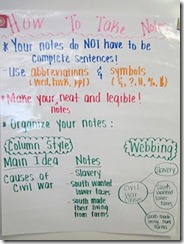 How To Take Notes
* Your notes do NOT have to be
complete sentences!
* Use abbreviations & symbols
* Make your neat and legible!
notes
* Organize your notes:
Column Style
Webbing
Main Idea
Notes
Causes of
Civil War
- Slavery
- South wanted
lower taxes
- South made
their living
from farms
Slavery
Civil War
South wanted
lower taxes
South made living
from farms